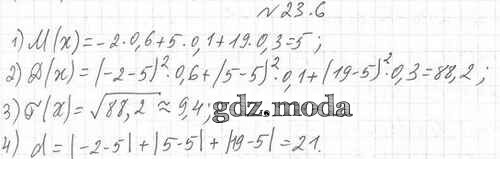 № 23.6
1) M(x) = -2·0,6+5·0,1+19·0,3=5;
2) D(x) = |-2-5|²·0,6+|5-5|²·0,1+|19-5|²·0,3=88,2;
3) σ(x) = √88,2 ≈ 9,4;
gdz.moda
4) d = |-2-5| + |5-5| + |19-5| = 21.